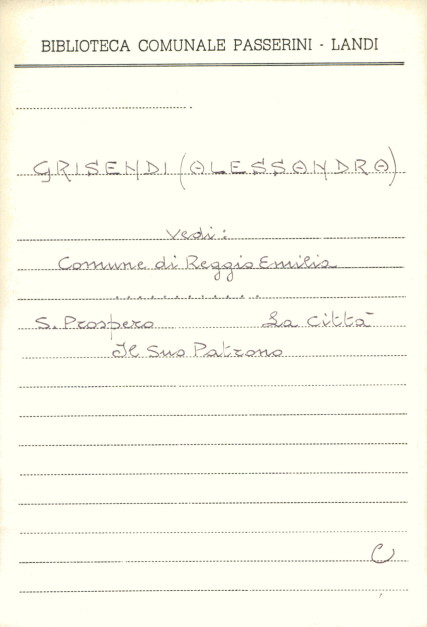 BIBLIOTECA COMUNALE PASSERINI - LANDI
GRISENDI (ALESSANDRA)
Vedi:
Comune di Reggio Emilia
..........
S. Prospero La Città
Il Suo Patrono
C